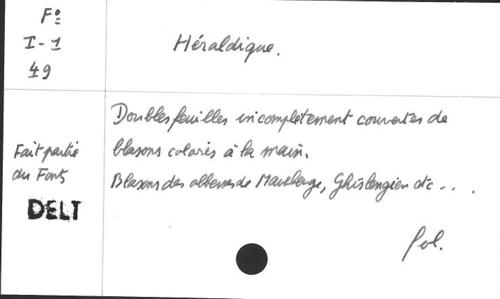 Fº
I-1
49
Héraldique.
Doubles feuilles incomplètement couvertes de
blasons coloriés à la main.
Blasons des abbesses de Maubeuge, Ghislenghien etc...
Fait partie
du Fonds
DELT
fol.